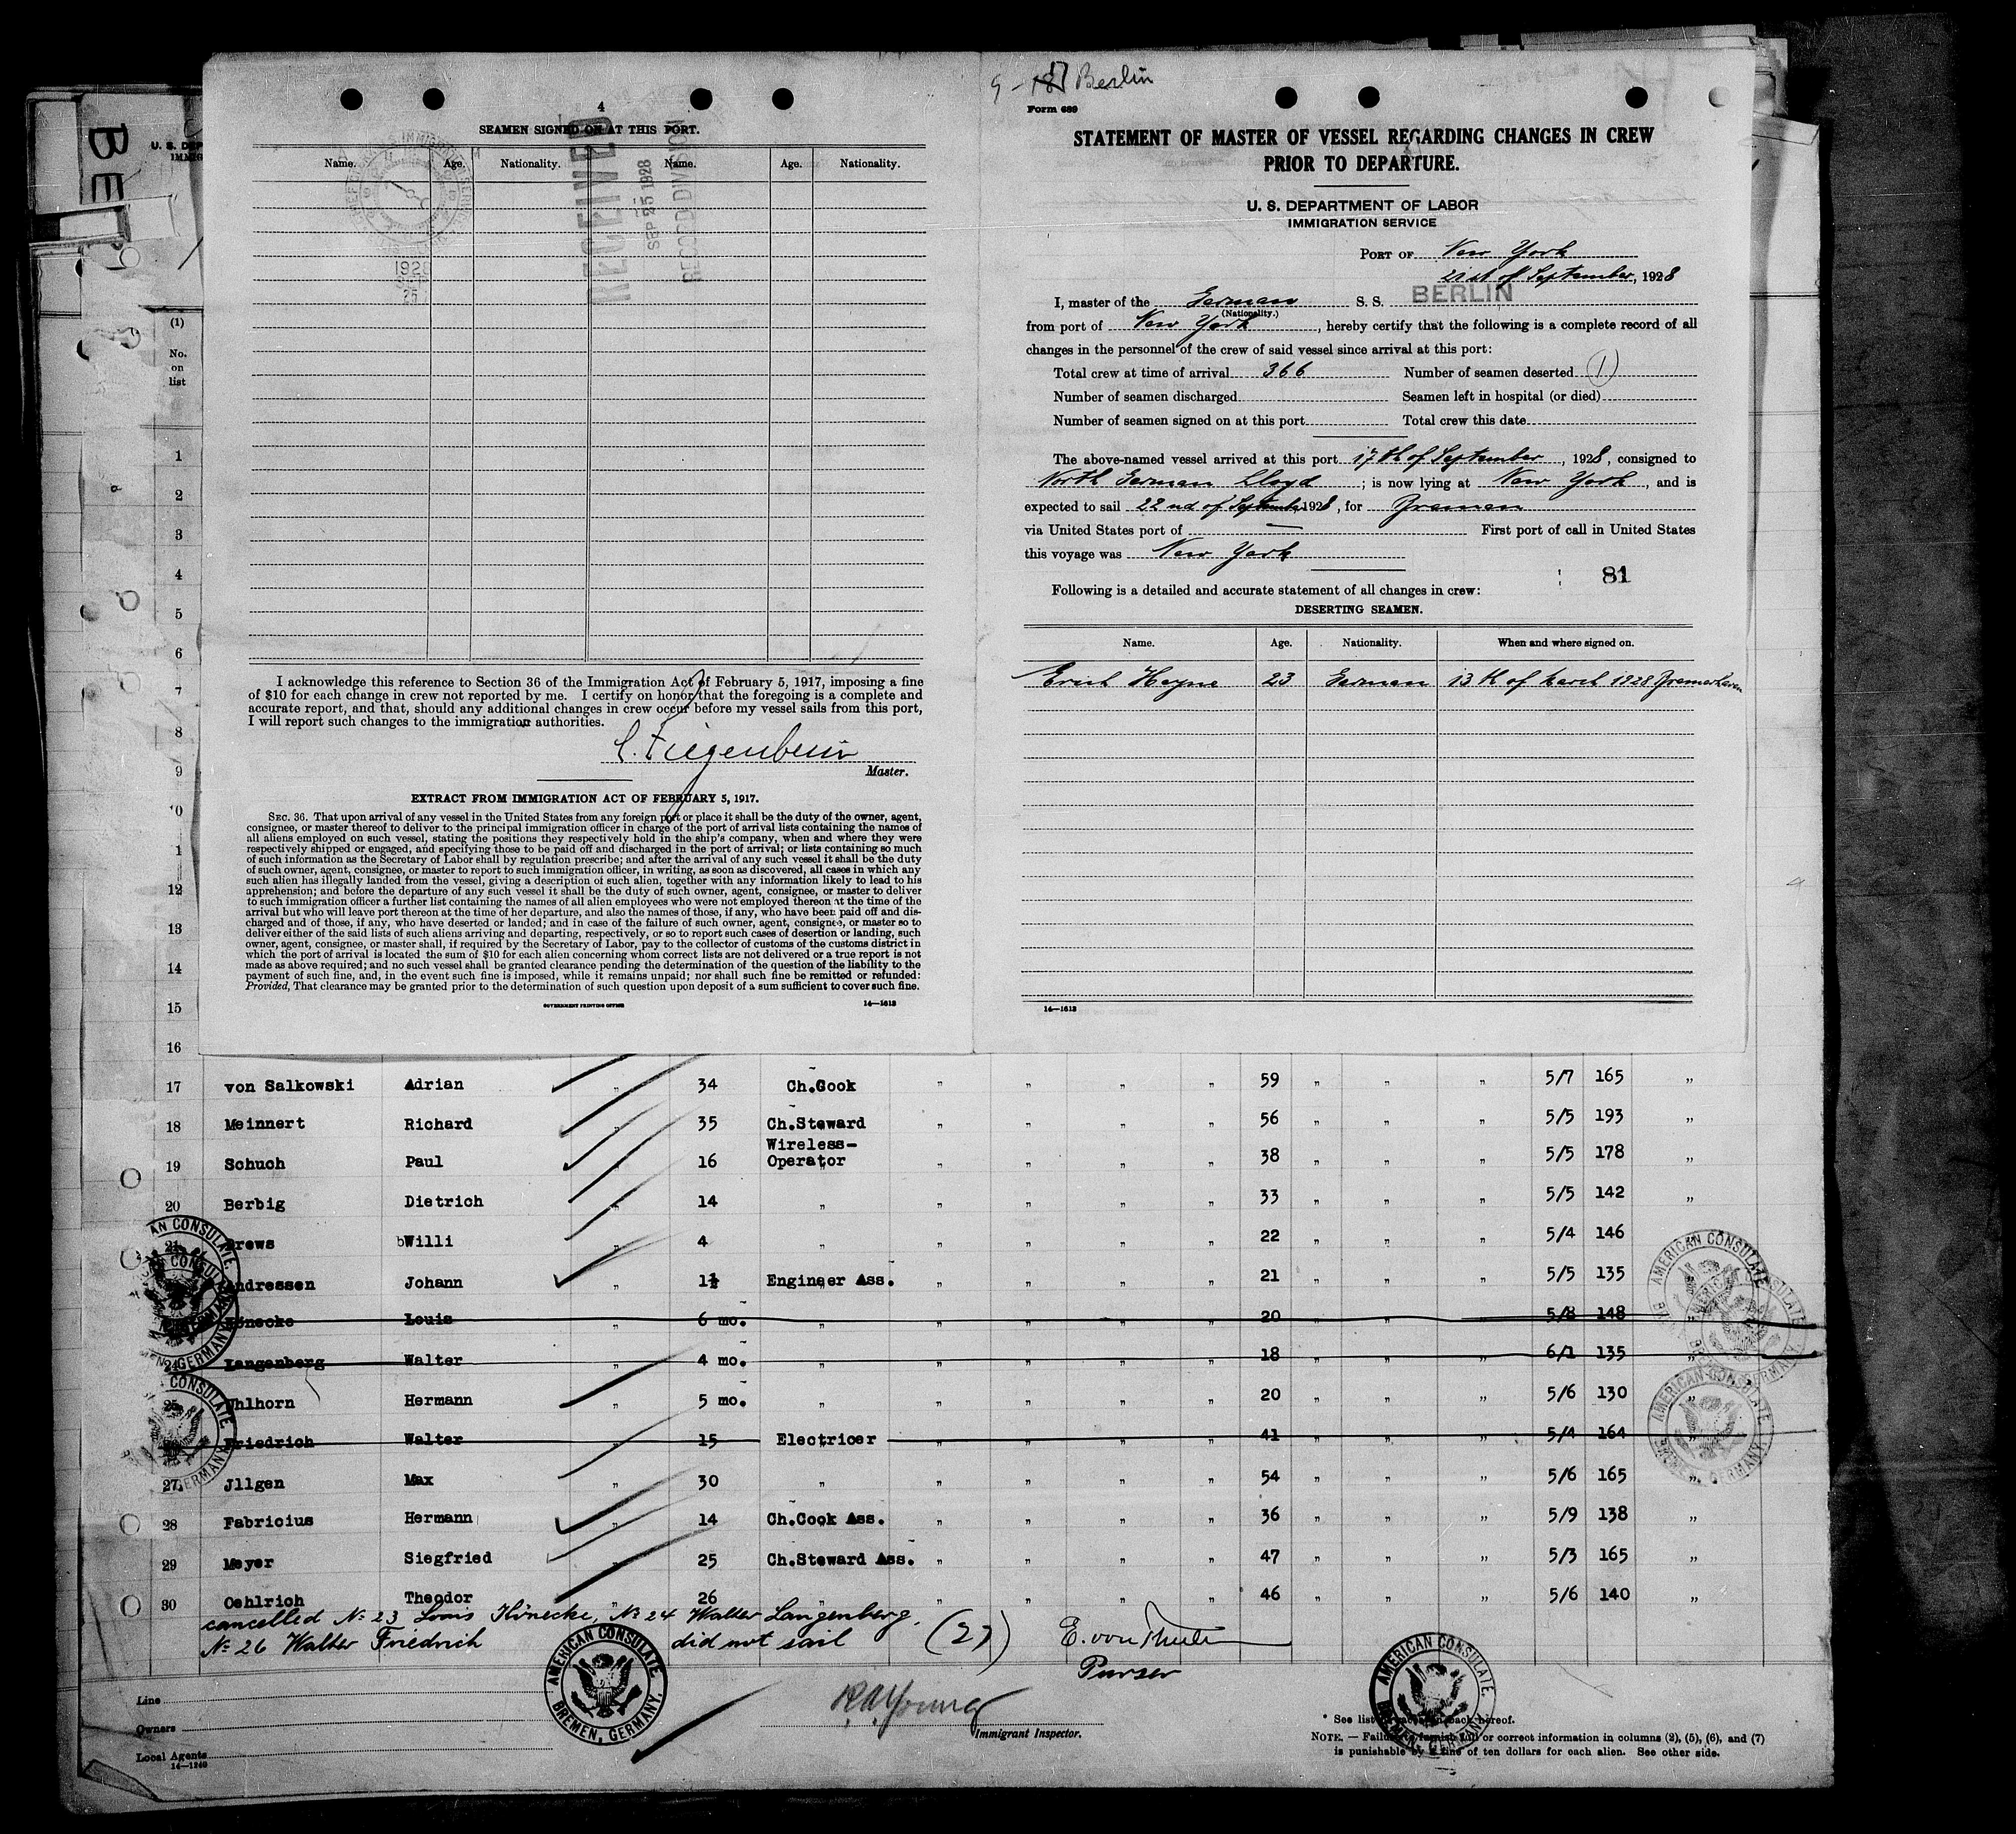 4
SEAMEN SIGNED ON AT THIS PORT.
Name. Age. Nationality. Name. Age. Nationality.
RECEIVED
SEP 25 1928
RECORD DIVISION
I acknowledge this reference to Section 36 of the Immigration Act of February 5, 1917, imposing a fine
of $10 for each change in crew not reported by me. I certify on honor that the foregoing is a complete and
accurate report, and that, should any additional changes in crew occur before my vessel sails from this port,
I will report such changes to the immigration authorities.
Master.
EXTRACT FROM IMMIGRATION ACT OF FEBRUARY 5, 1917.
SEC. 36. That upon arrival of any vessel in the United States from any foreign port or place it shall be the duty of the owner, agent,
consignee, or master thereof to deliver to the principal immigration officer in charge of the port of arrival lists containing the names of
all aliens employed on such vessel, stating the positions they respectively hold in the ship's company, when and where they were
respectively shipped or engaged, and specifying those to be paid off and discharged in the port of arrival; or lists containing so much
of such information as the Secretary of Labor shall by regulation prescribe; and after the arrival of any such vessel it shall be the duty
of such owner, agent, consignee, or master to report to such immigration officer, in writing, as soon as discovered, all cases in which any
such alien has illegally landed from the vessel, giving a description of such alien, together with any information likely to lead to his
apprehension; and before the departure of any such vessel it shall be the duty of such owner, agent, consignee, or master to deliver
to such immigration officer a further list containing the names of all alien employees who were not employed thereon at the time of the
arrival but who will leave port thereon at the time of her departure, and also the names of those, if any, who have been paid off and dis-
charged and of those, if any, who have deserted or landed; and in case of the failure of such owner, agent, consignee, or master so to
deliver either of the said lists of such aliens arriving and departing, respectively, or so to report such cases of desertion or landing, such
owner, agent, consignee, or master shall, if required by the Secretary of Labor, pay to the collector of customs of the customs district in
which the port of arrival is located the sum of $10 for each alien concerning whom correct lists are not delivered or a true report is not
made as above required; and no such vessel shall be granted clearance pending the determination of the question of the liability to the
payment of such fine, and, in the event such fine is imposed, while it remains unpaid; nor shall such fine be remitted or refunded:
Provided, That clearance may be granted prior to the determination of such question upon deposit of a sum sufficient to cover such fine.
GOVERNMENT PRINTING OFFICE 14—1613
Berlin
Form 689
STATEMENT OF MASTER OF VESSEL REGARDING CHANGES IN CREW
PRIOR TO DEPARTURE.
U. S. DEPARTMENT OF LABOR
IMMIGRATION SERVICE
PORT OF New York
21st of September, 1928
I, master of the German S. S. BERLIN
(Nationality.)
from port of New York, hereby certify that the following is a complete record of all
changes in the personnel of the crew of said vessel since arrival at this port:
Total crew at time of arrival 366 Number of seamen deserted 1
Number of seamen discharged Seamen left in hospital (or died)
Number of seamen signed on at this port Total crew this date
The above-named vessel arrived at this port 17th of September, 1928, consigned to
North German Lloyd; is now lying at New York, and is
expected to sail 22nd of September 1928, for Bremen
via United States port of — First port of call in United States
this voyage was New York
81
Following is a detailed and accurate statement of all changes in crew:
DESERTING SEAMEN.
Name. Age. Nationality. When and where signed on.
Erich Heyne 23 German 13th of March 1928 Bremerhaven
14—1613
(1)
No.
on
list
1
2
3
4
5
6
7
8
9
0
1
12
13
14
15
16
17 von Salkowski Adrian " 34 Ch.Cook " " " " 59 " " " 5/7 165 "
18 Meinnert Richard " 35 Ch.Steward " " " " 56 " " " 5/5 193 "
19 Schuch Paul " 16 Wireless-
Operator " " " " 38 " " " 5/5 178 "
20 Berbig Dietrich " 14 " " " " " 33 " " " 5/5 142 "
21 Drews Willi " 4 " " " " " 22 " " " 5/4 146 "
Andressen Johann " 1½ Engineer Ass. " " " " 21 " " " 5/5 135 "
Könecke Louis " 6 mo. " " " " " 20 " " " 5/8 148 "
24 Langenberg Walter " 4 mo. " " " " " 18 " " " 6/1 135 "
25 Uhlhorn Hermann " 5 mo. " " " " " 20 " " " 5/6 130 "
Friedrich Walter " 15 Electricer " " " " 41 " " " 5/4 164 "
27 Jllgen Max " 30 " " " " " 54 " " " 5/6 165 "
28 Fabricius Hermann " 14 Ch.Cook Ass. " " " " 36 " " " 5/9 138 "
29 Meyer Siegfried " 25 Ch.Steward Ass. " " " " 47 " " " 5/3 165 "
30 Oehlrich Theodor " 26 " " " " " 46 " " " 5/6 140 "
cancelled No 23 Louis Könecke, No 24 Walter Langenberg,
No 26 Walter Friedrich did not sail (27)
Purser
AMERICAN CONSULATE.
BREMEN, GERMANY.
AMERICAN CONSULATE.
Line
Owners
Local Agents
14—1240
Immigrant Inspector.
* See list of races on back hereof.
NOTE. — Failure to furnish full or correct information in columns (2), (5), (6), and (7)
is punishable by a fine of ten dollars for each alien. See other side.